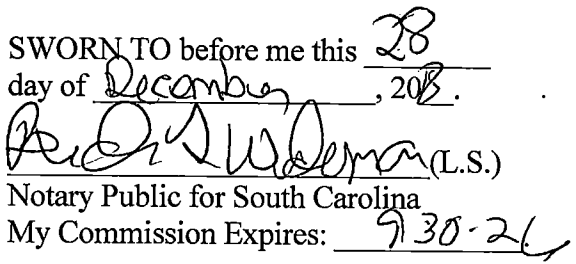 SWORN TO before me this 28
day of December, 2018.
(L.S.)
Notary Public for South Carolina
My Commission Expires: 9-30-26